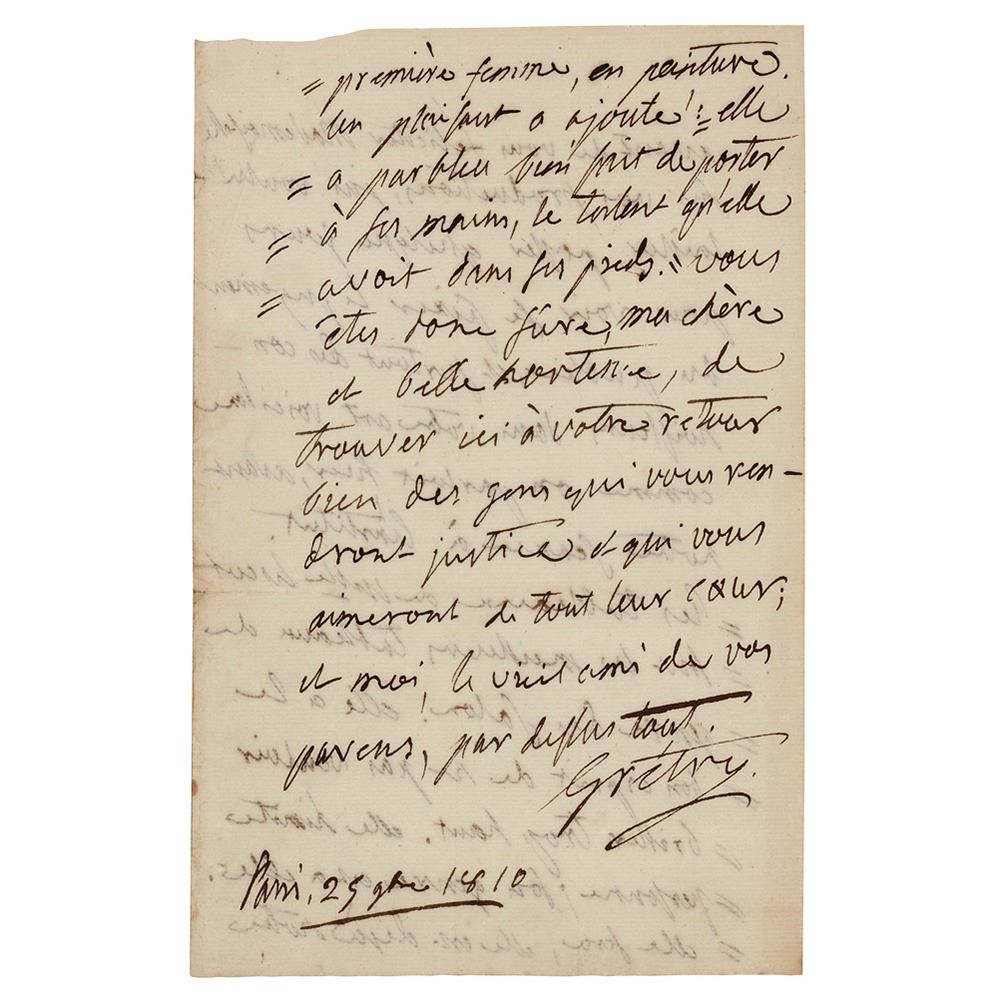 = première femme, en peinture.
un plaisant a ajouté: = elle
= a parbleu bien fait de porter
= à ses mains, le talent qu'elle
= avoit dans ses pieds. " vous
êtes donc sûre, ma chère
et belle hortense, de
trouver ici à votre retour
bien des gens qui vous ren-
dront justice et qui vous
aimeront de tout leur cœur;
et moi, le vieil ami de vos
parens, par dessus tout.
Grétry.
Paris, 25 9bre 1810